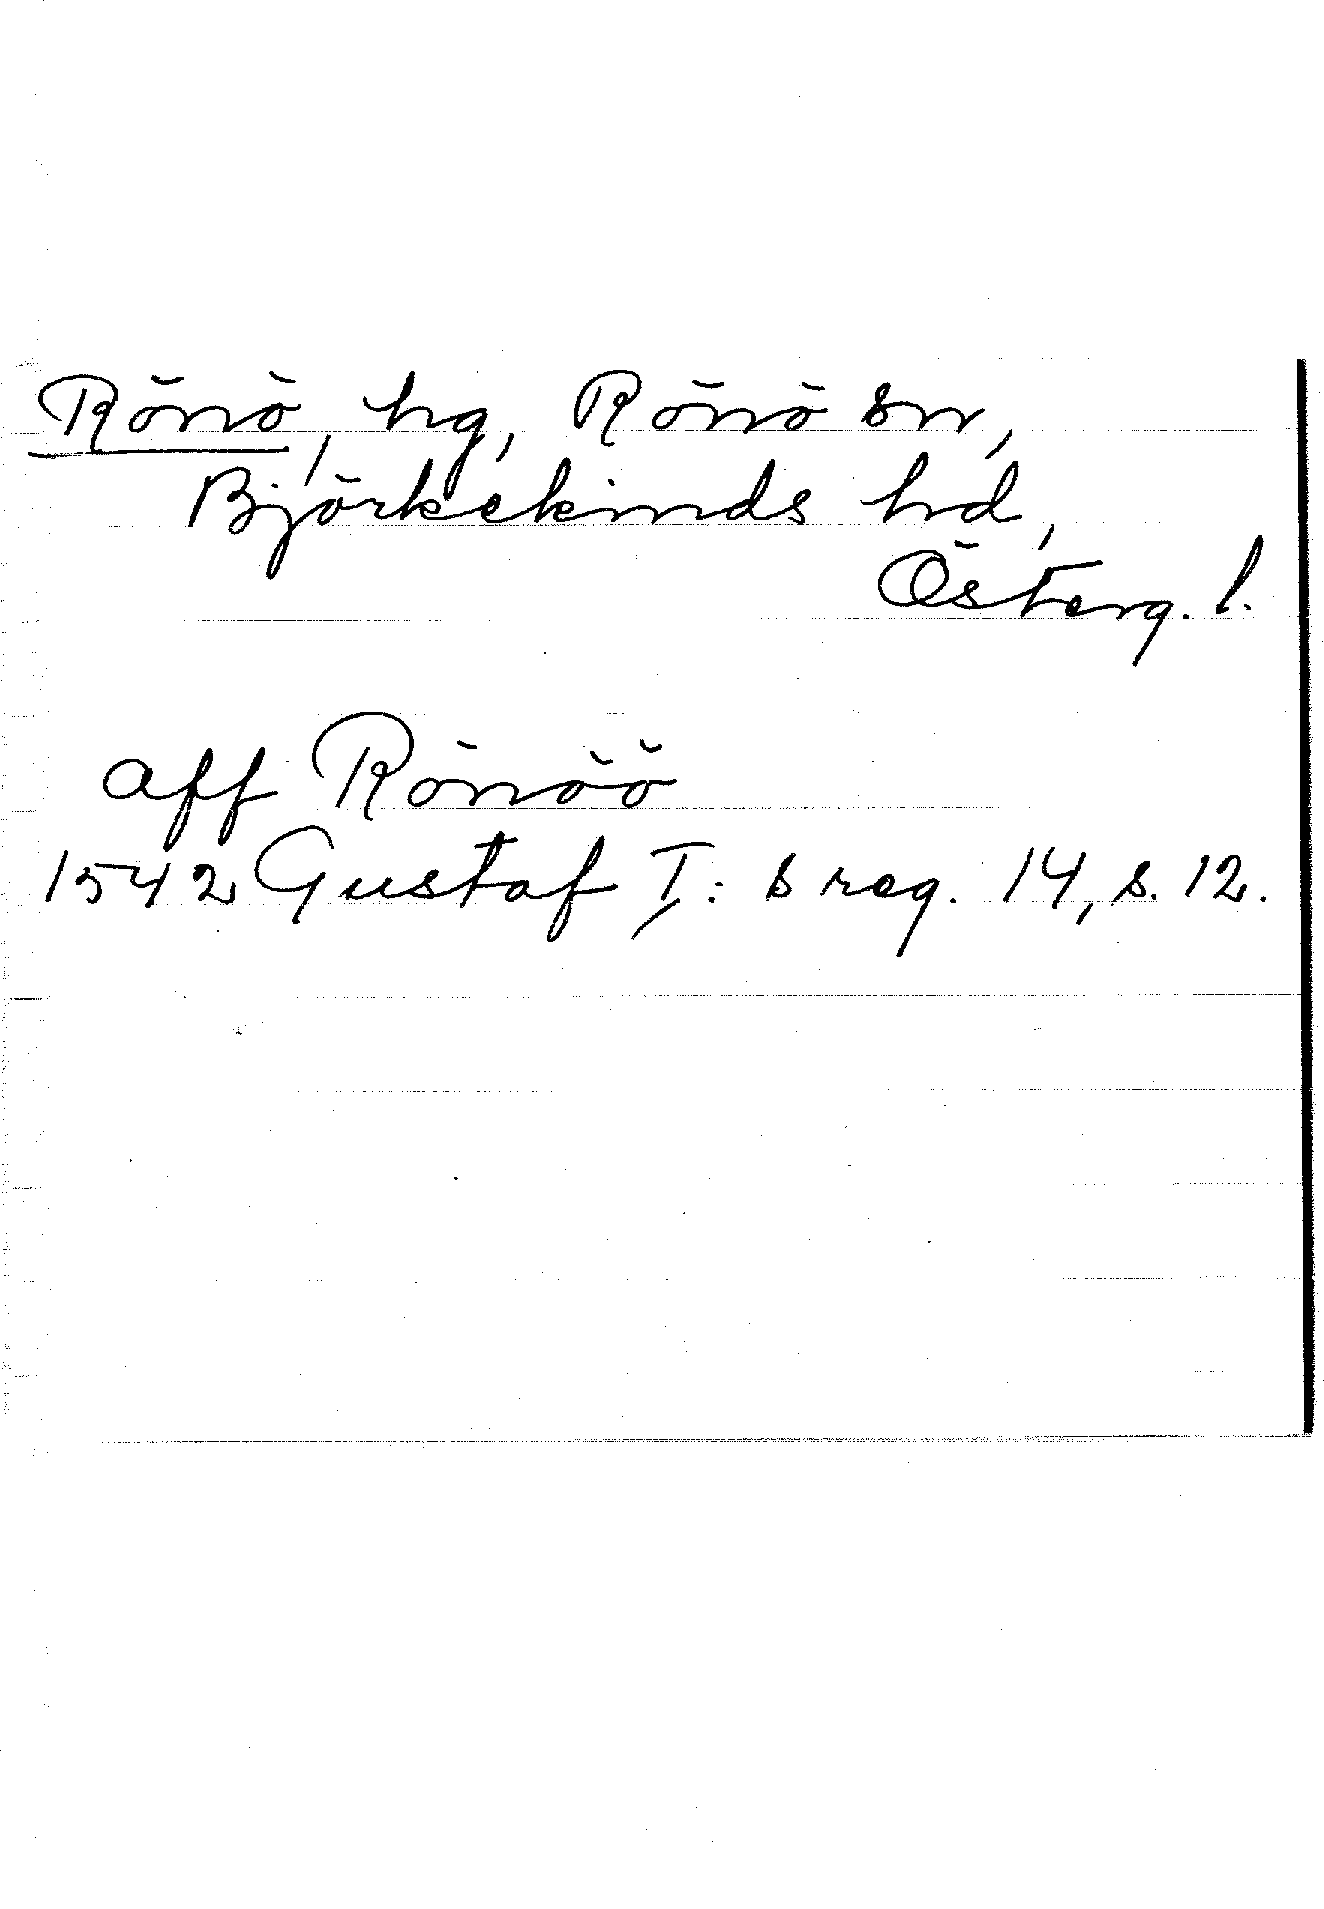 Rönö, hg, Rönö sn,
Björkekinds hd,
Österg. l.
aff Rönöö
1542 Gustaf I:s reg. 14, s. 12.